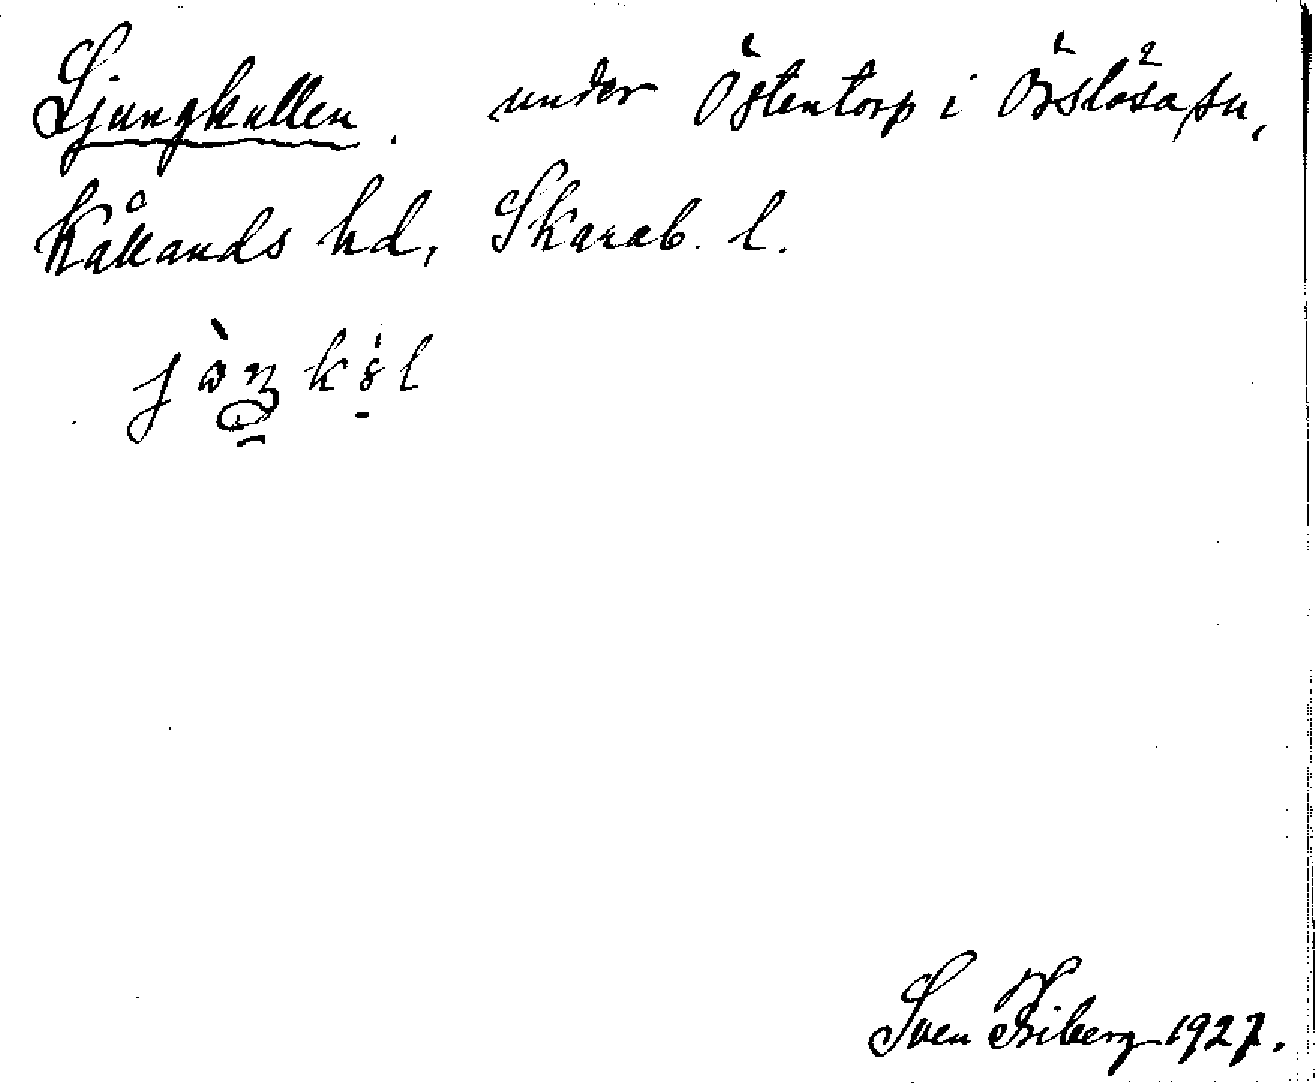 Ljungkullen. under Östentorp i Örslösa sn,
Kållands hd, Skarab. l.
Sven Friberg 1927.